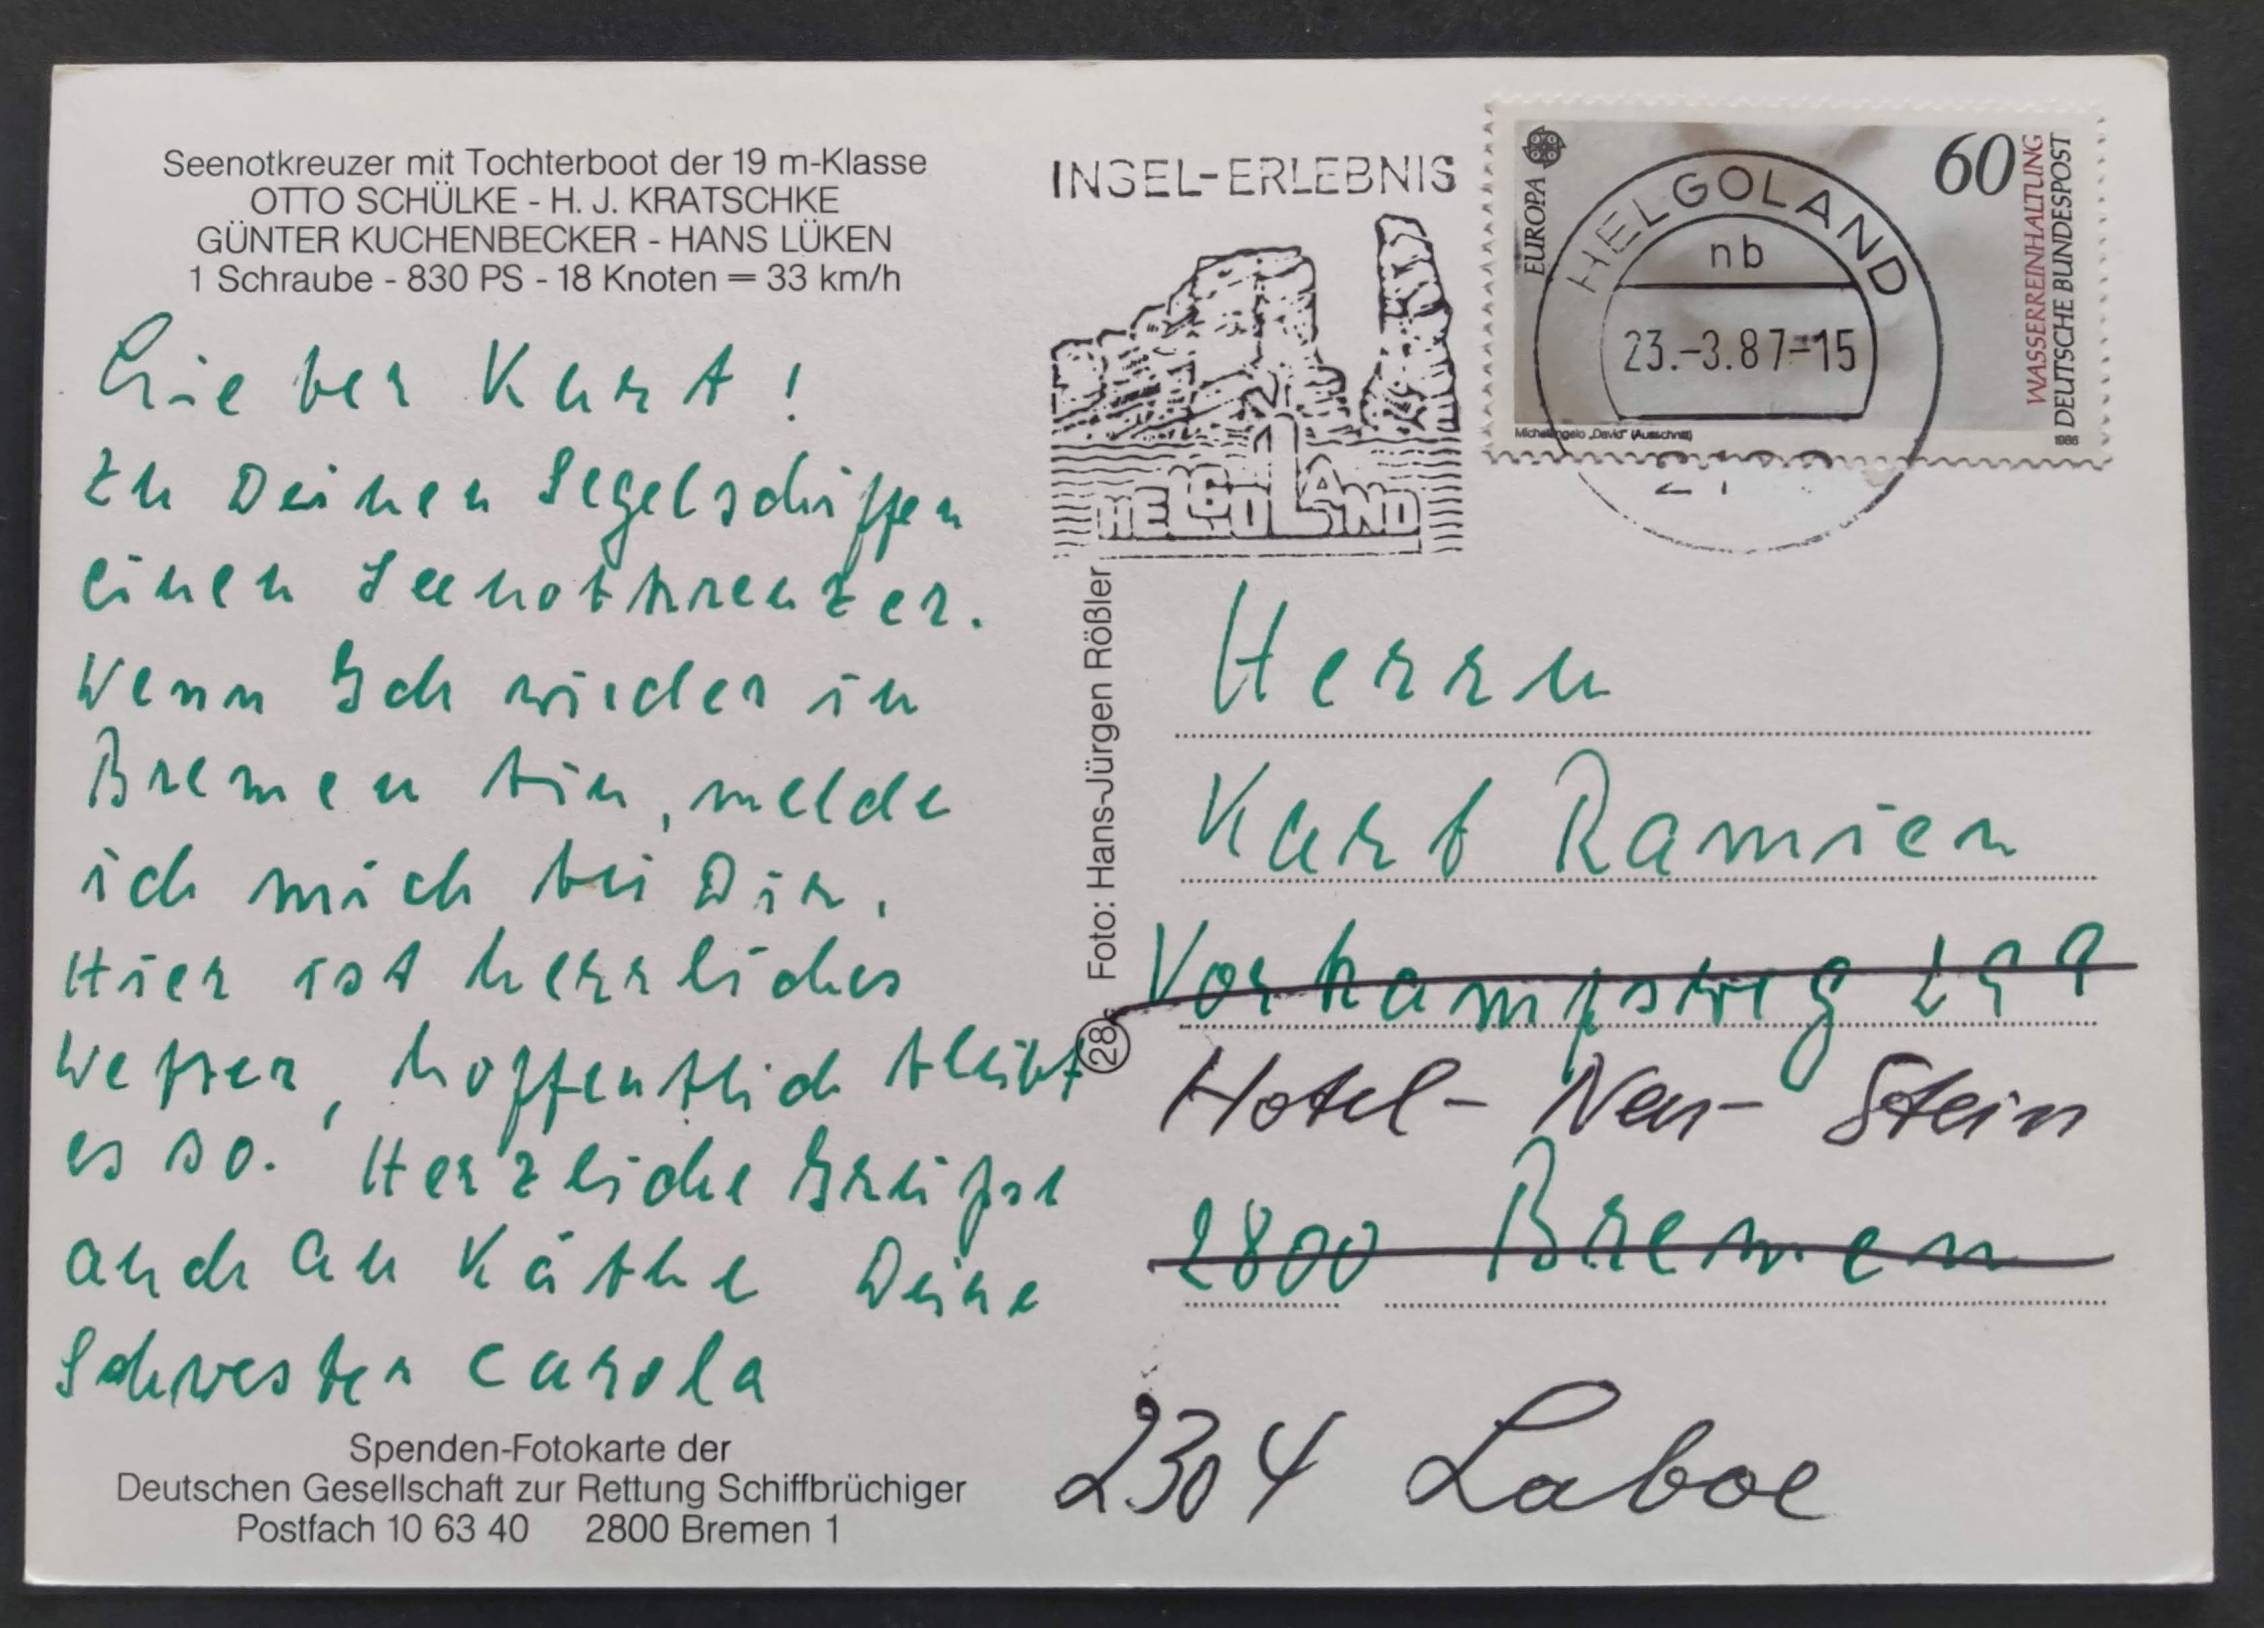 Seenotkreuzer mit Tochterboot der 19 m-Klasse
OTTO SCHÜLKE - H. J. KRATSCHKE
GÜNTER KUCHENBECKER - HANS LÜKEN
1 Schraube - 830 PS - 18 Knoten = 33 km/h
Lieber Kurt!
Zu Deinen Segelschiffen
einen Seenotkreuzer.
Wenn Ich wieder in
Bremen bin, melde
ich mich bei Dir.
Hier ist herrliches
Wetter, hoffentlich bleibt
es so. Herzliche Grüße
auch an Käthe Deine
Schwester Carola
Spenden-Fotokarte der
Deutschen Gesellschaft zur Rettung Schiffbrüchiger
Postfach 10 63 40 2800 Bremen 1
INSEL-ERLEBNIS
HELGOLAND
Foto: Hans-Jürgen Rößler
28
EUROPA
60
WASSERREINHALTUNG
DEUTSCHE BUNDESPOST
Michelangelo „David" (Ausschnitt)
1986
HELGOLAND
nb
23.-3.87-15
Herrn
Kurt Ramien
Vorkampsweg
Hotel- Neu- Stein
2800 Bremen
2304 Laboe